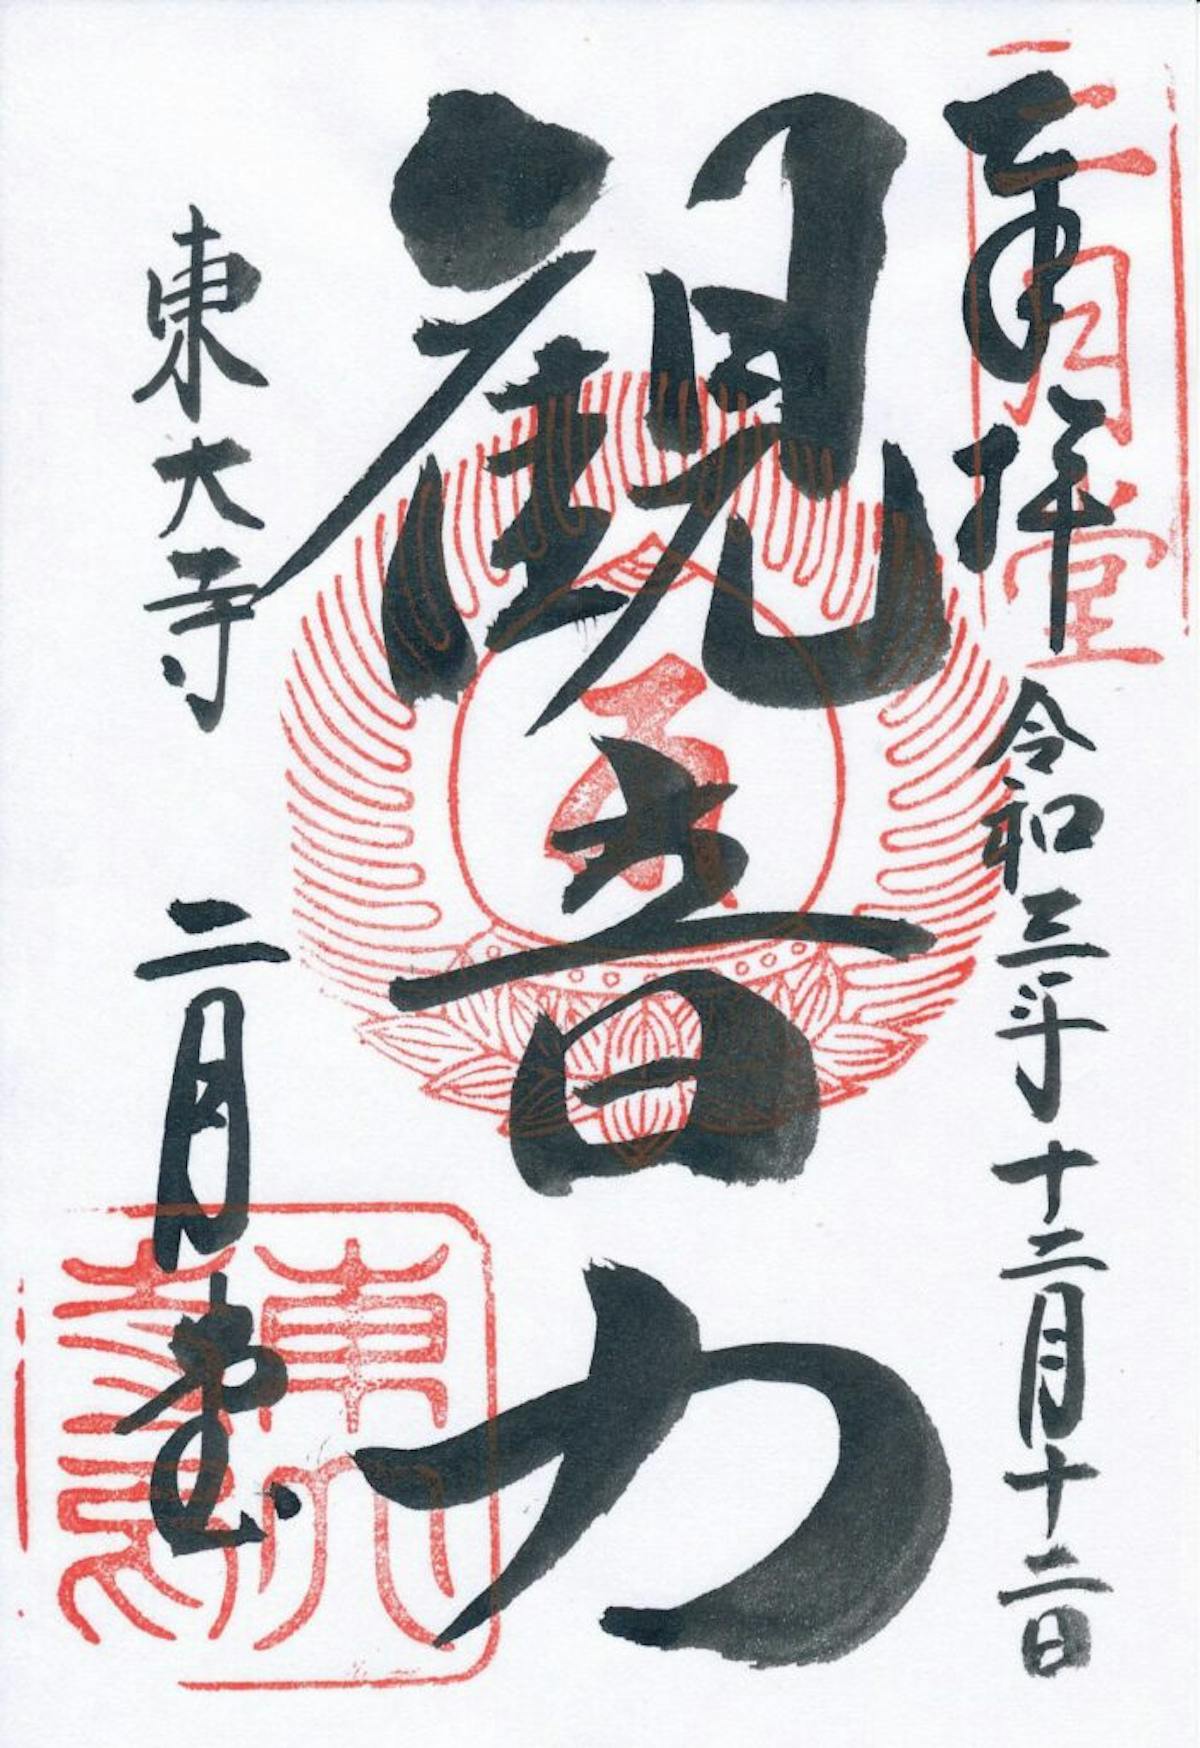 奉拝
令和三年十二月十二日
二月堂
観音力
東大寺
二月堂
東大寺印